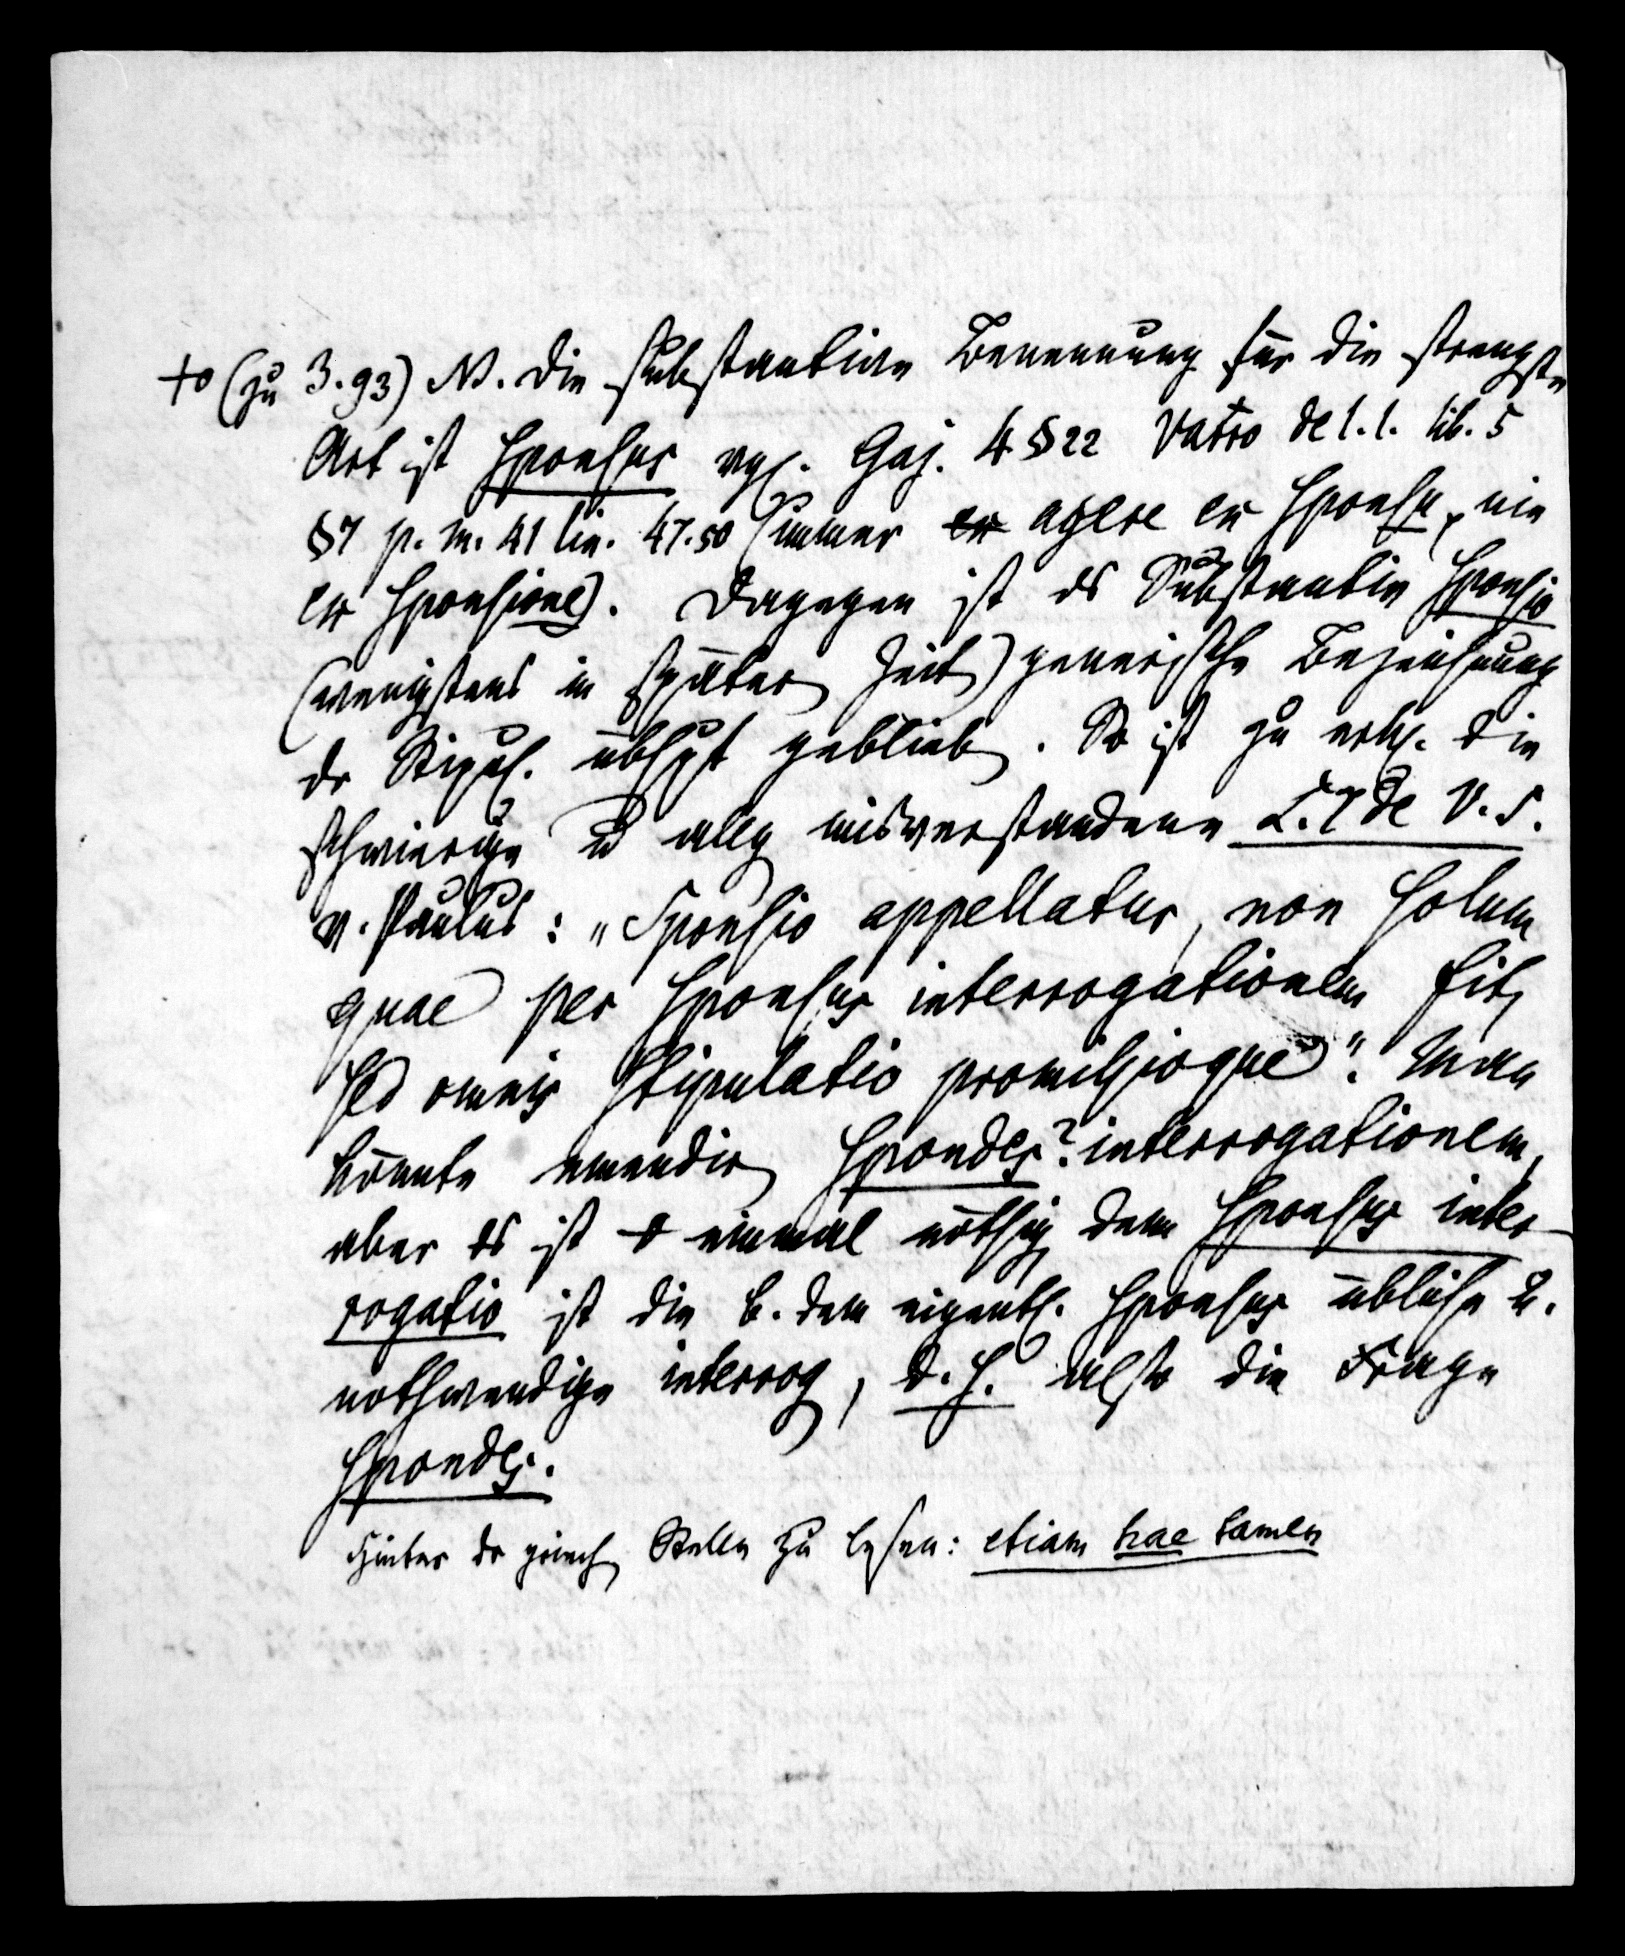 to (zu 3. 93) N. die substantive Benennung für die strengste
Art ist sponsus vgl. Gaj. 4 § 22 Varro de l. l. lib. 5
§ 7 p. m. 41 lin. 47. 50 (immer ex agere ex sponsu, nie
ex sponsione). Dagegen ist ds Substantiv sponsio
(wenigstens in später Zeit) generische Bezeichnung
dr Stipul. übhpt geblieb. So ist zu erkl. die
schwierige u allg misverstandene L. 7 de V. S.
v. Paulus: „Sponsio appellatur, non solum
quae per sponsus interrogationem fit,
sed omnis stipulatio promissioque“. Man
könnte emendir spondes? interrogationem,
aber es ist einmal nöthig denn sponsus inter-
rogatio ist die b. dem eigentl. sponsus übliche u.
nothwendige interrog, d. h. also die Frage
spondes.
Hinter dr griech Stelle zu lesen: etiam hae tamen